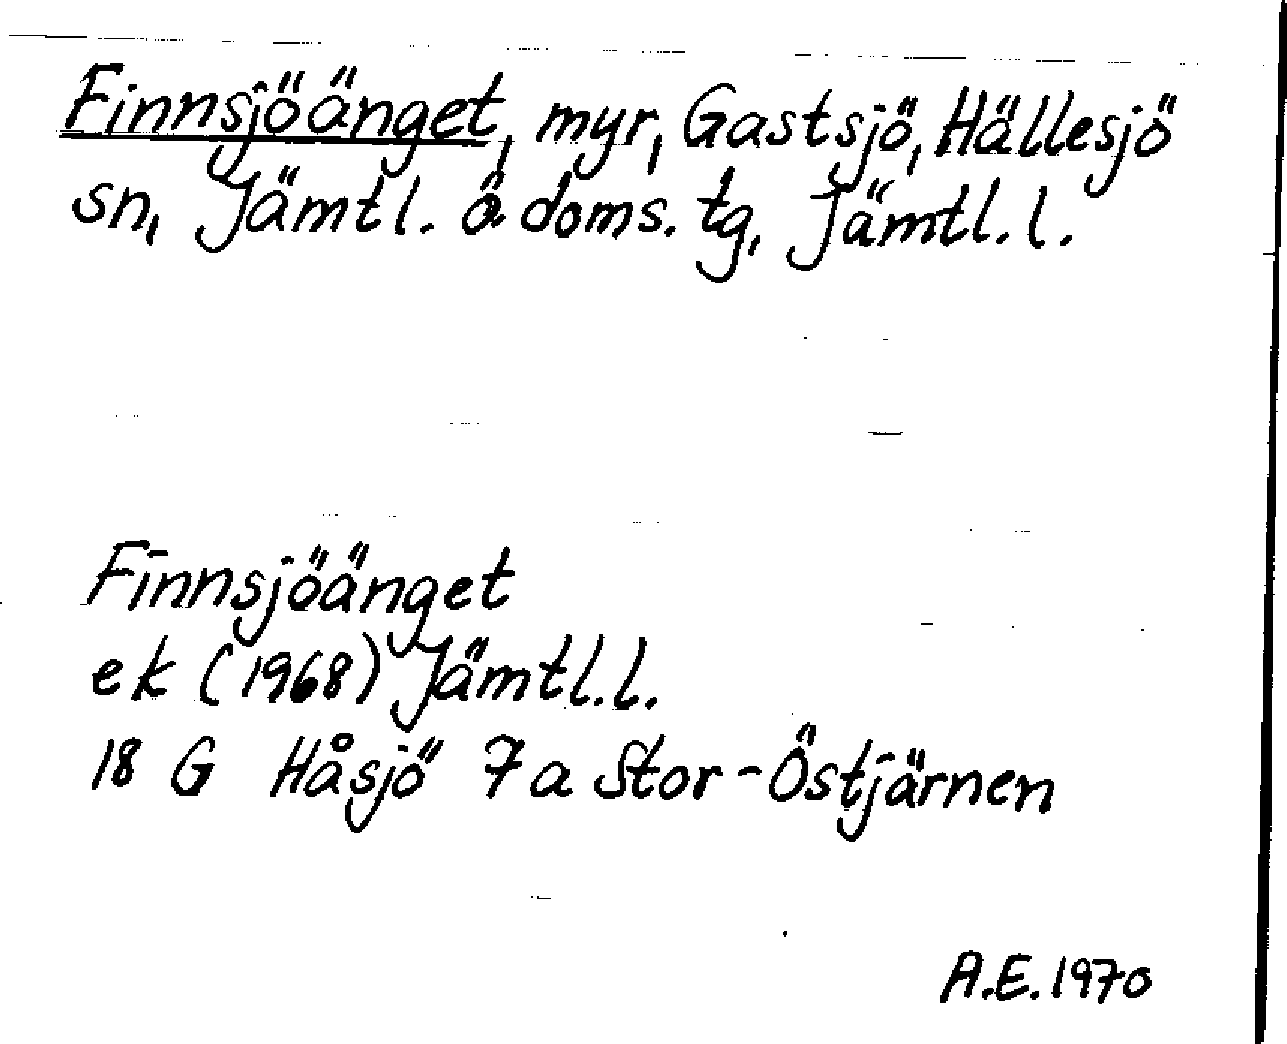 Finnsjöänget, myr, Gastsjö, Hällesjö
sn, Jämtl. ö doms. tg, Jämtl. l.
Finnsjöänget
ek (1968) Jämtl. l.
18 G Håsjö 7a Stor-Östjärnen
A.E. 1970